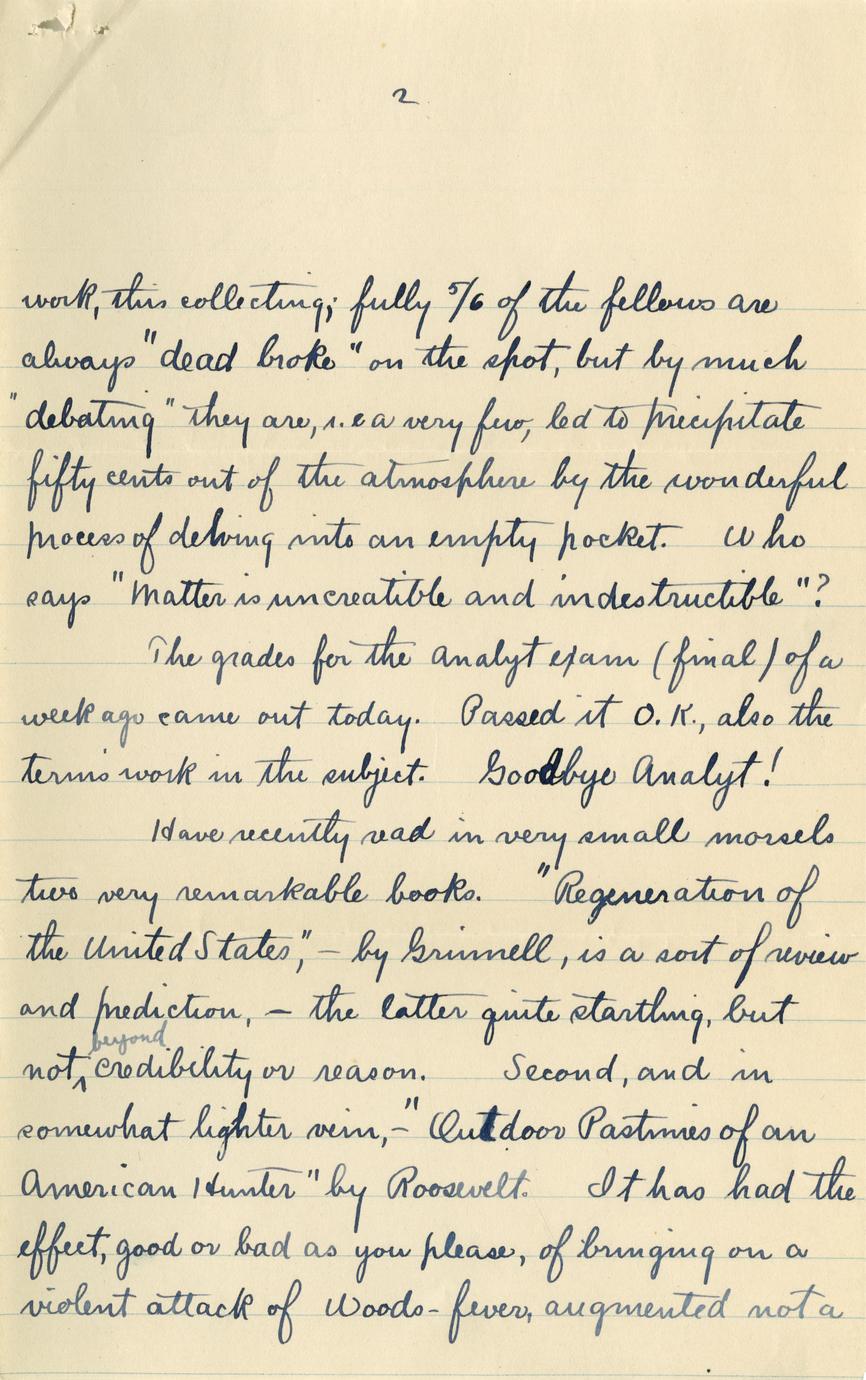 2
work, this collecting; fully 5/6 of the fellows are
always "dead broke" on the spot, but by much
"debating" they are, i.e a very few, led to precipitate
fifty cents out of the atmosphere by the wonderful
process of delving into an empty pocket. Who
says "Matter is uncreatible and indestructible"?
The grades for the Analyt exam (final) of a
week ago came out today. Passed it O.K., also the
term's work in the subject. Goodbye Analyt!
Have recently read in very small morsels
two very remarkable books. "Regeneration of
the United States", – by Grinnell, is a sort of review
and prediction, – the latter quite startling, but
beyond
not ‸ credibility or reason. Second, and in
somewhat lighter vein, – "Outdoor Pastimes of an
American Hunter" by Roosevelt. It has had the
effect, good or bad as you please, of bringing on a
violent attack of Woods-fever, augmented not a